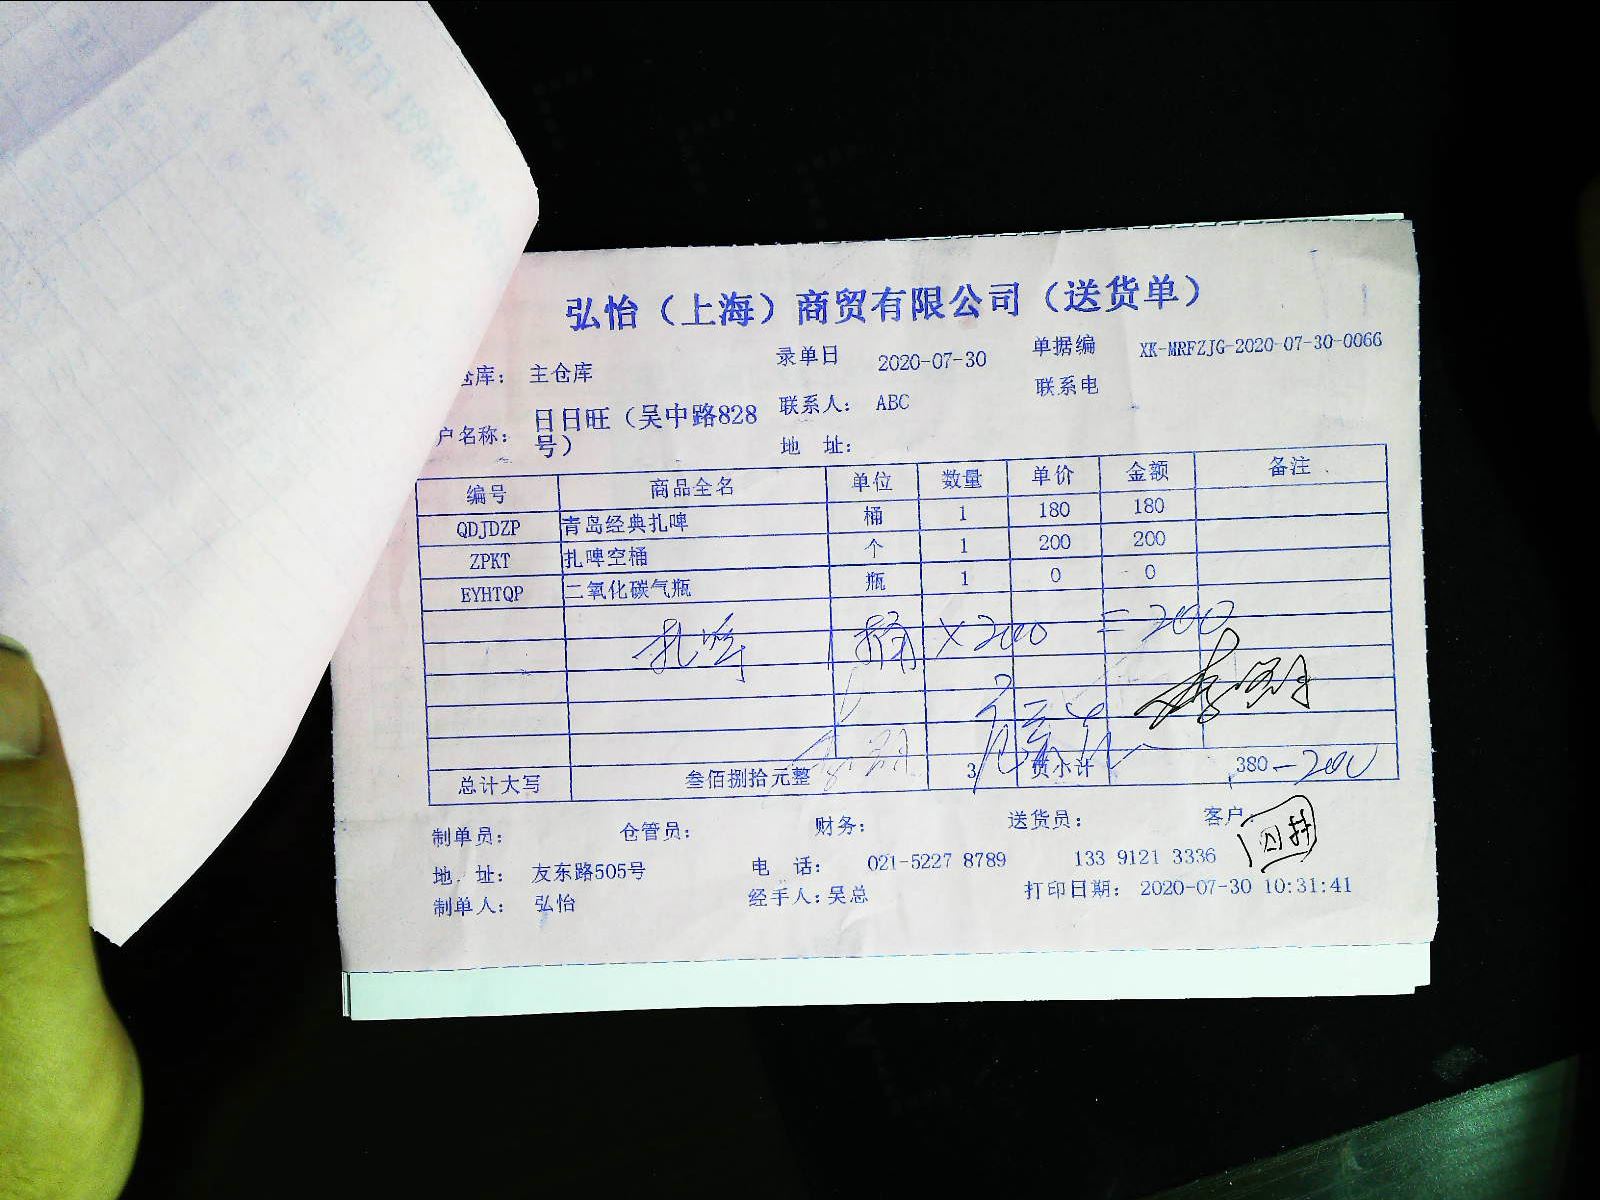 弘怡（上海）商贸有限公司（送货单）
仓库： 主仓库 录单日 2020-07-30 单据编 XK-MRFZJG-2020-07-30-0066
户名称： 日日旺（吴中路828号） 联系人： ABC 联系电
地 址：
编号 商品全名 单位 数量 单价 金额 备注
QDJDZP 青岛经典扎啤 桶 1 180 180
ZPKT 扎啤空桶 个 1 200 200
EYHTQP 二氧化碳气瓶 瓶 1 0 0
扎啤 桶 X200 =200
总计大写 叁佰捌拾元整 3 货小计 380 -200
制单员： 仓管员： 财务： 送货员： 客户：
地 址： 友东路505号 电 话： 021-5227 8789 133 9121 3336
制单人： 弘怡 经手人：吴总 打印日期： 2020-07-30 10:31:41